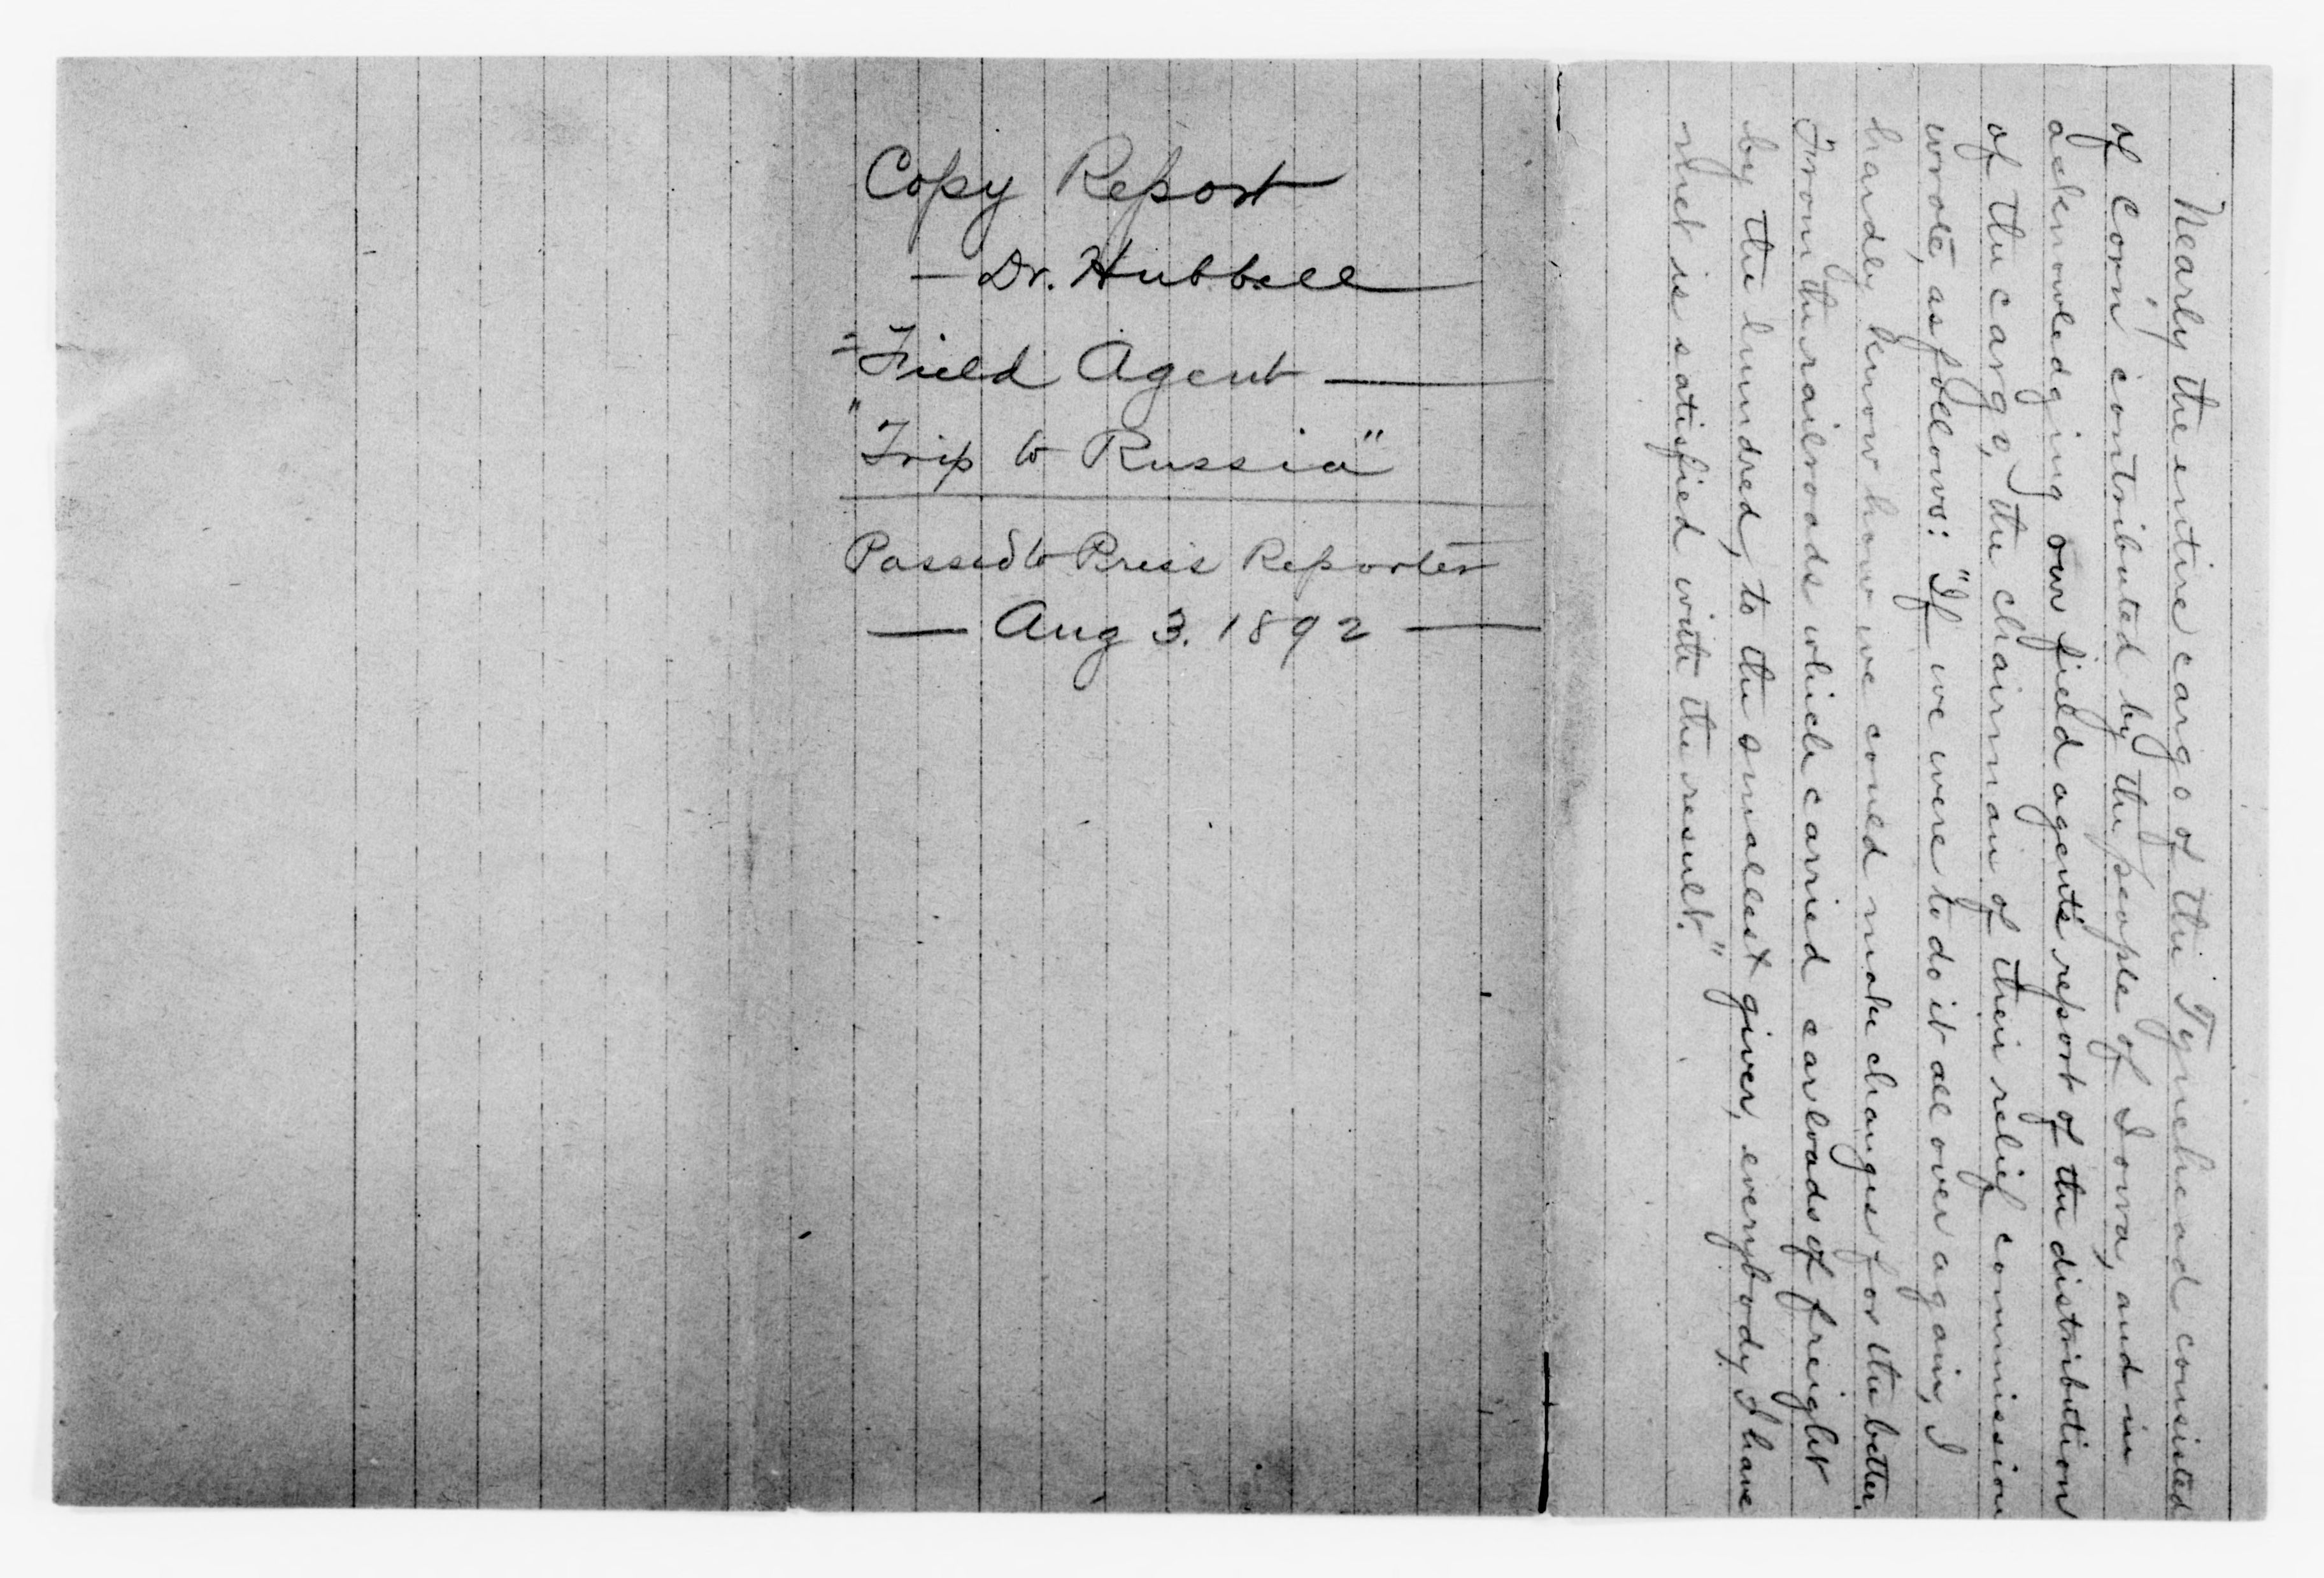 Copy Report
— Dr. Hubbell
Field Agent —
"Trip to Russia"
Passed to Press Reporter
— Aug 3. 1892 —
Nearly the entire cargo of the Tynehead consisted
of corn contributed by the people of Iowa, and in
acknowledging our field agent's report of the distribution
of the cargo, the chairman of their relief commission
wrote, as follows: "If we were to do it all over again, I
hardly know how we could make changes for the better.
From the railroads which carried carloads of freight
by the hundred, to the smallest giver, everybody I have
met is satisfied with the result."